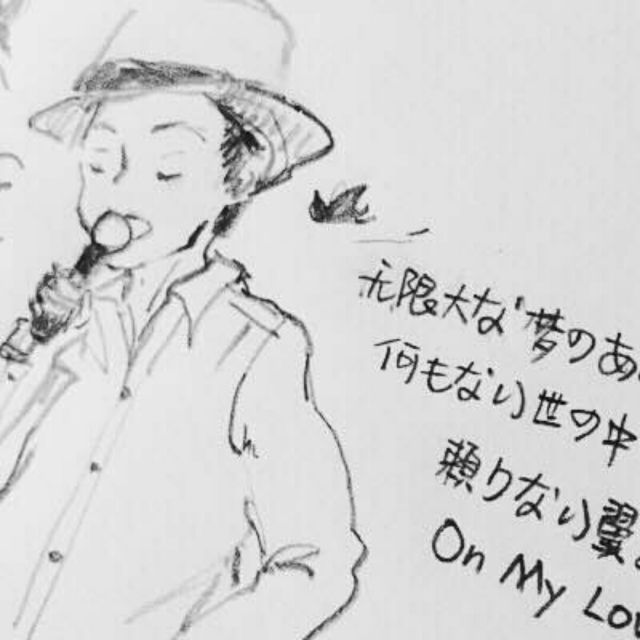 无限大な夢のあ
何もない世の中
頼りない翼
On My Lo